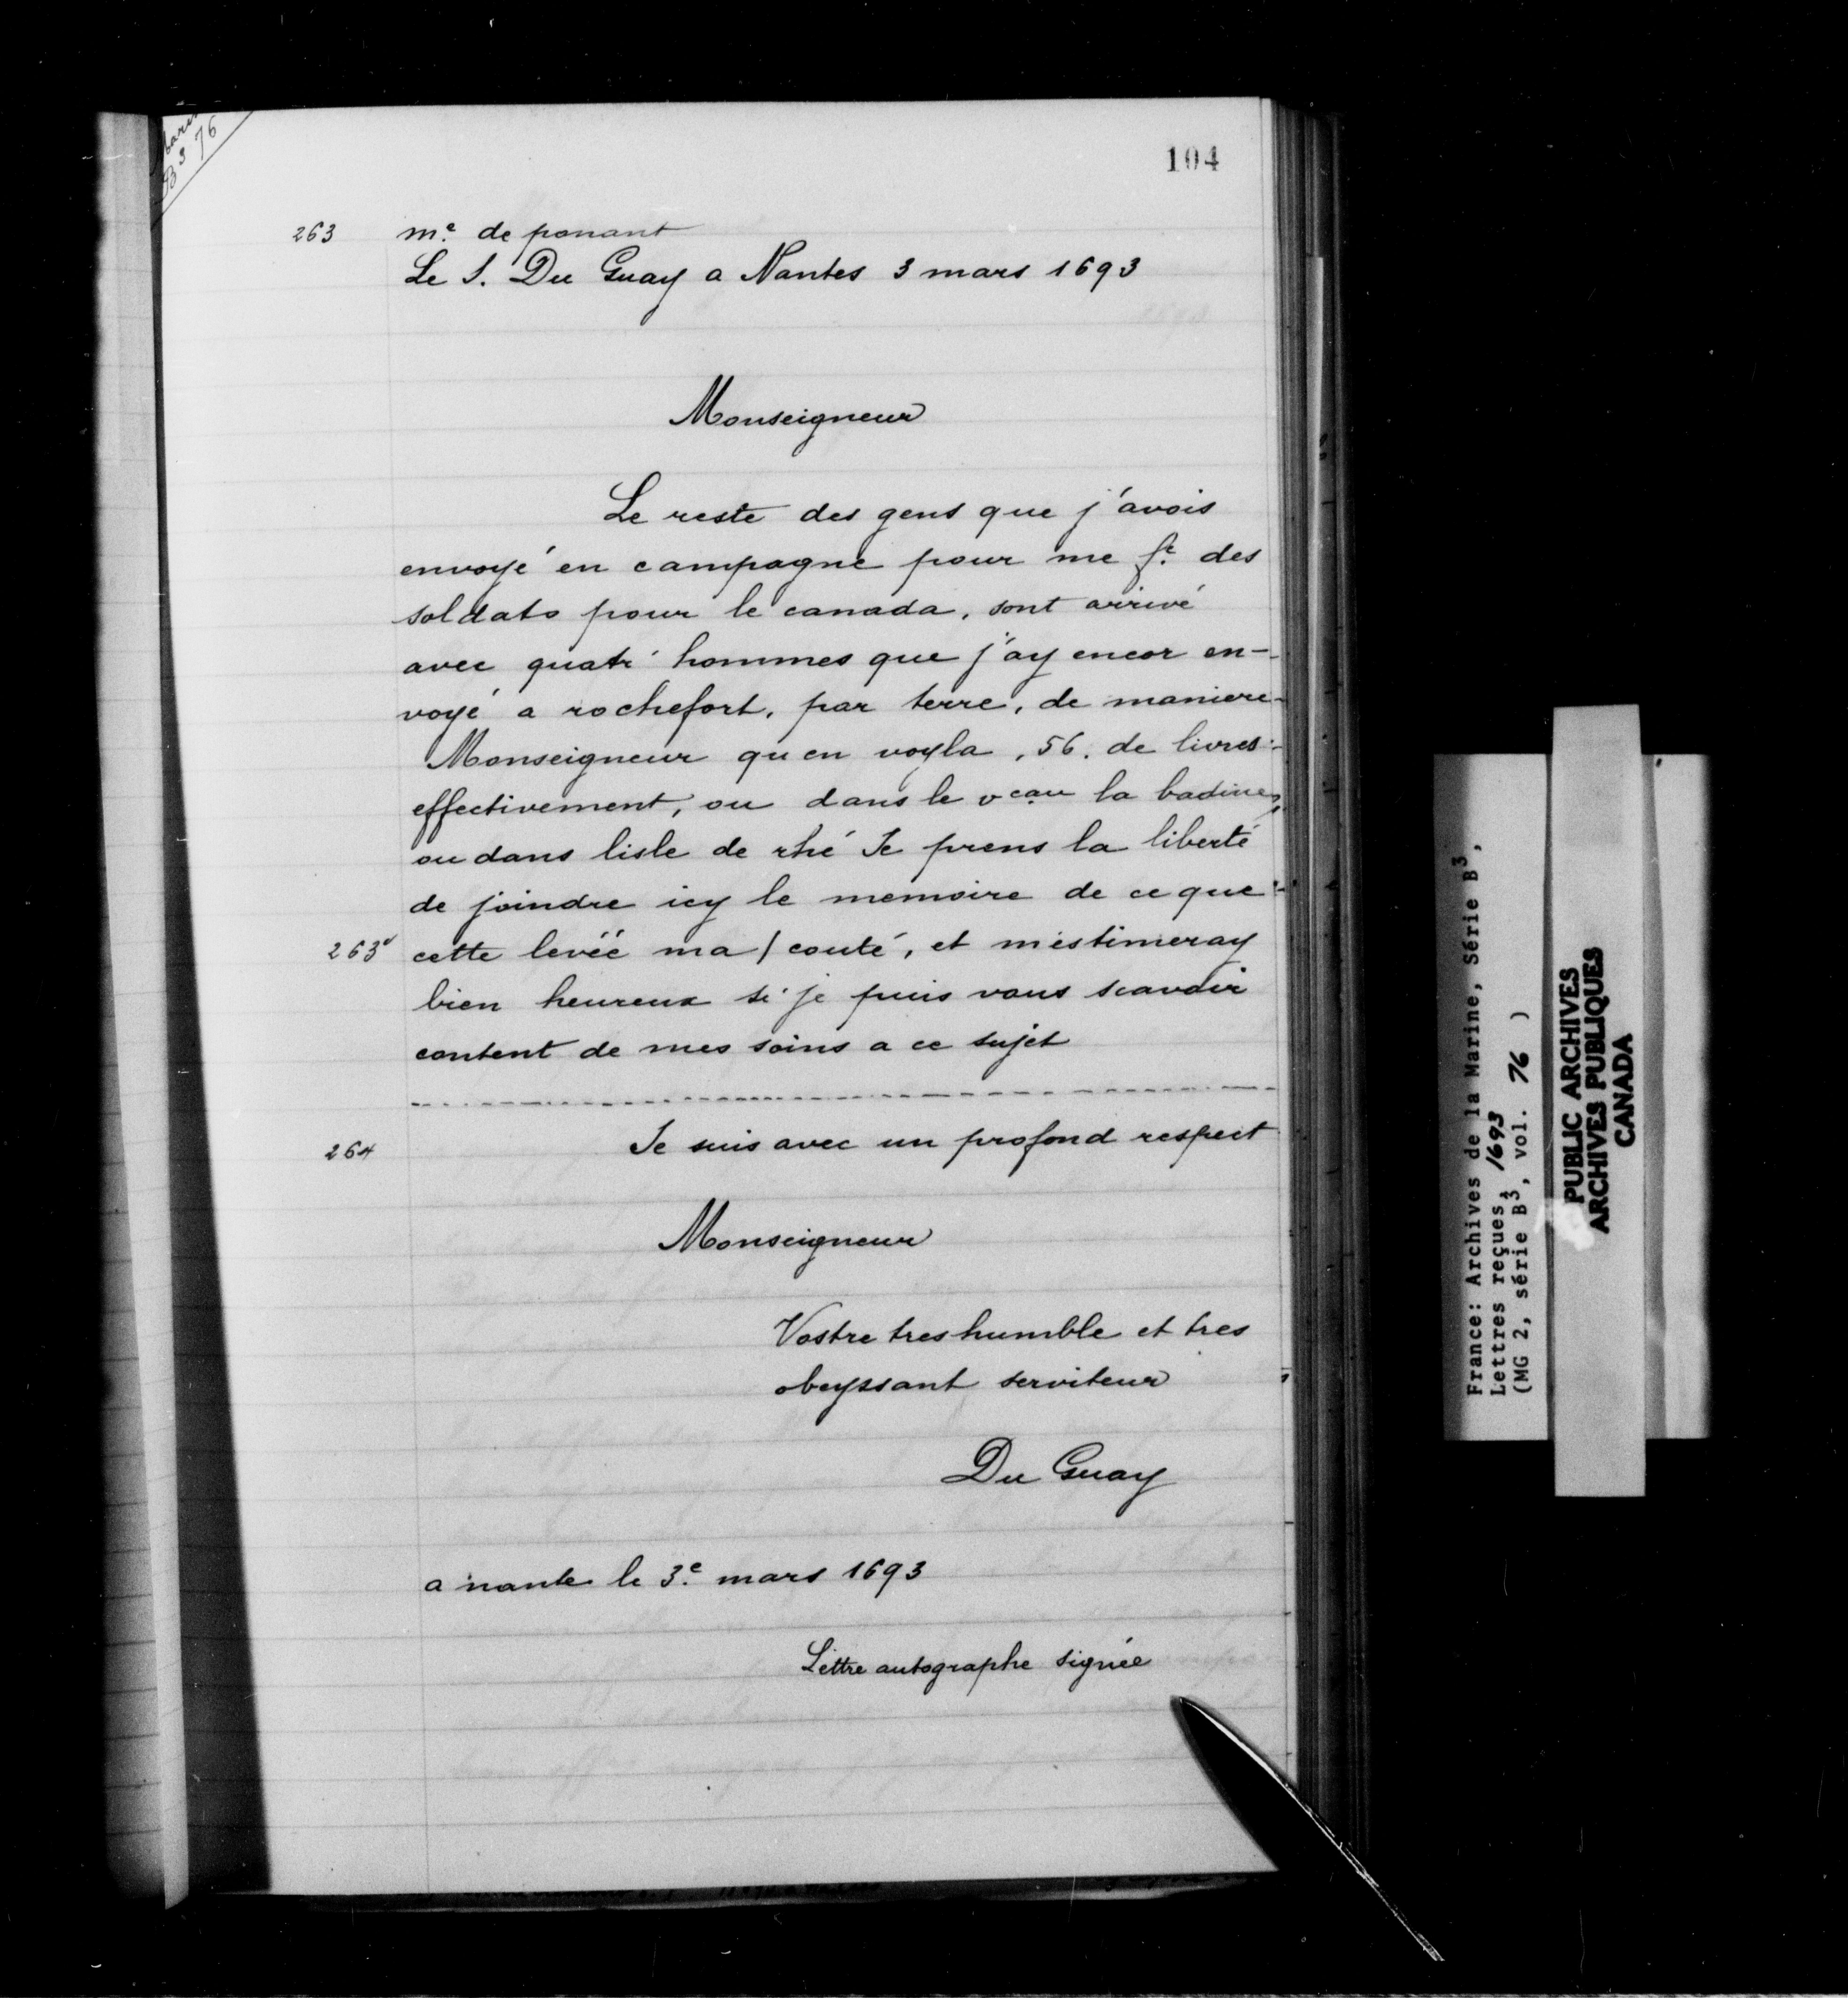 B3 76
104
263 me. de ponant
Le S. Du Guay a Nantes 3 mars 1693
Monseigneur
Le reste des gens que j'avois
envoyé en campagne pour me fe. des
soldats pour le canada, sont arrivé
avec quatr' hommes que j'ay encor en-
voyé a rochefort, par terre, de maniere-
Monseigneur qu en voyla, 56. de livres-
effectivement, ou dans le vcau la badine,
ou dans lisle de rhé Je prens la liberté
de joindre icy le memoire de ce que-
263v cette levéé ma / couté, et m'estimeray
bien heureux si je puis vous scavoir
content de mes soins a ce sujet
264 Je suis avec un profond respect
Monseigneur
Vostre tres humble et tres
obeyssant serviteur
Du Guay
a nante le 3e. mars 1693
Lettre autographe signée
France: Archives de la Marine, Série B3,
Lettres reçues, 1693
(MG 2, série B3, vol. 76 )
PUBLIC ARCHIVES
ARCHIVES PUBLIQUES
CANADA